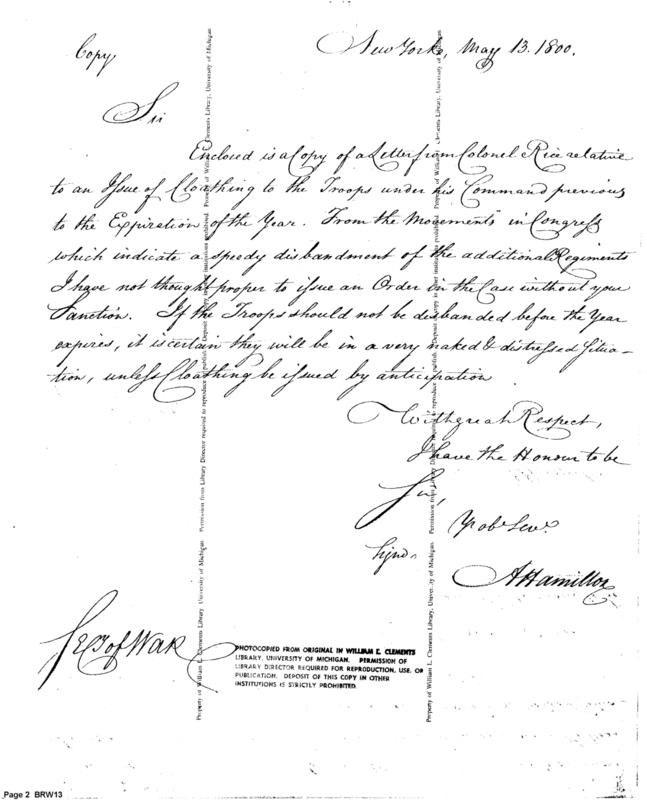 Copy
New York, May 13. 1800.
Sir
Enclosed is a Copy of a Letter from Colonel Rice relative
to an Issue of Cloathing to the Troops under his Command previous
to the Expiration of the Year. From the Movements in Congress
which indicate a speedy disbandment of the additional Regiments
I have not thought proper to issue an Order in the Case without your
Sanction. If the Troops should not be disbanded before the Year
expires, it is certain they will be in a very naked & distressed situa-
tion, unless Cloathing be issued by anticipation
With great Respect,
I have the Honour to be
Sir,
Yr obt Servt
Signd
A Hamilton
Secy of War
PHOTOCOPIED FROM ORIGINAL IN WILLIAM L. CLEMENTS
LIBRARY, UNIVERSITY OF MICHIGAN. PERMISSION OF
LIBRARY DIRECTOR REQUIRED FOR REPRODUCTION, USE, OR
PUBLICATION. DEPOSIT OF THIS COPY IN OTHER
INSTITUTIONS IS STRICTLY PROHIBITED.
Property of William L. Clements Library, University of Michigan. Permission from Library Director required to reproduce or publish. Deposit of copy in other institutions prohibited. Property of William L. Clements Library, University of Michigan
Property of William L. Clements Library, University of Michigan. Permission from Library Director required to reproduce or publish. Deposit of copy in other institutions prohibited. Property of William L. Clements Library, University of Michigan
Page 2 BRW13